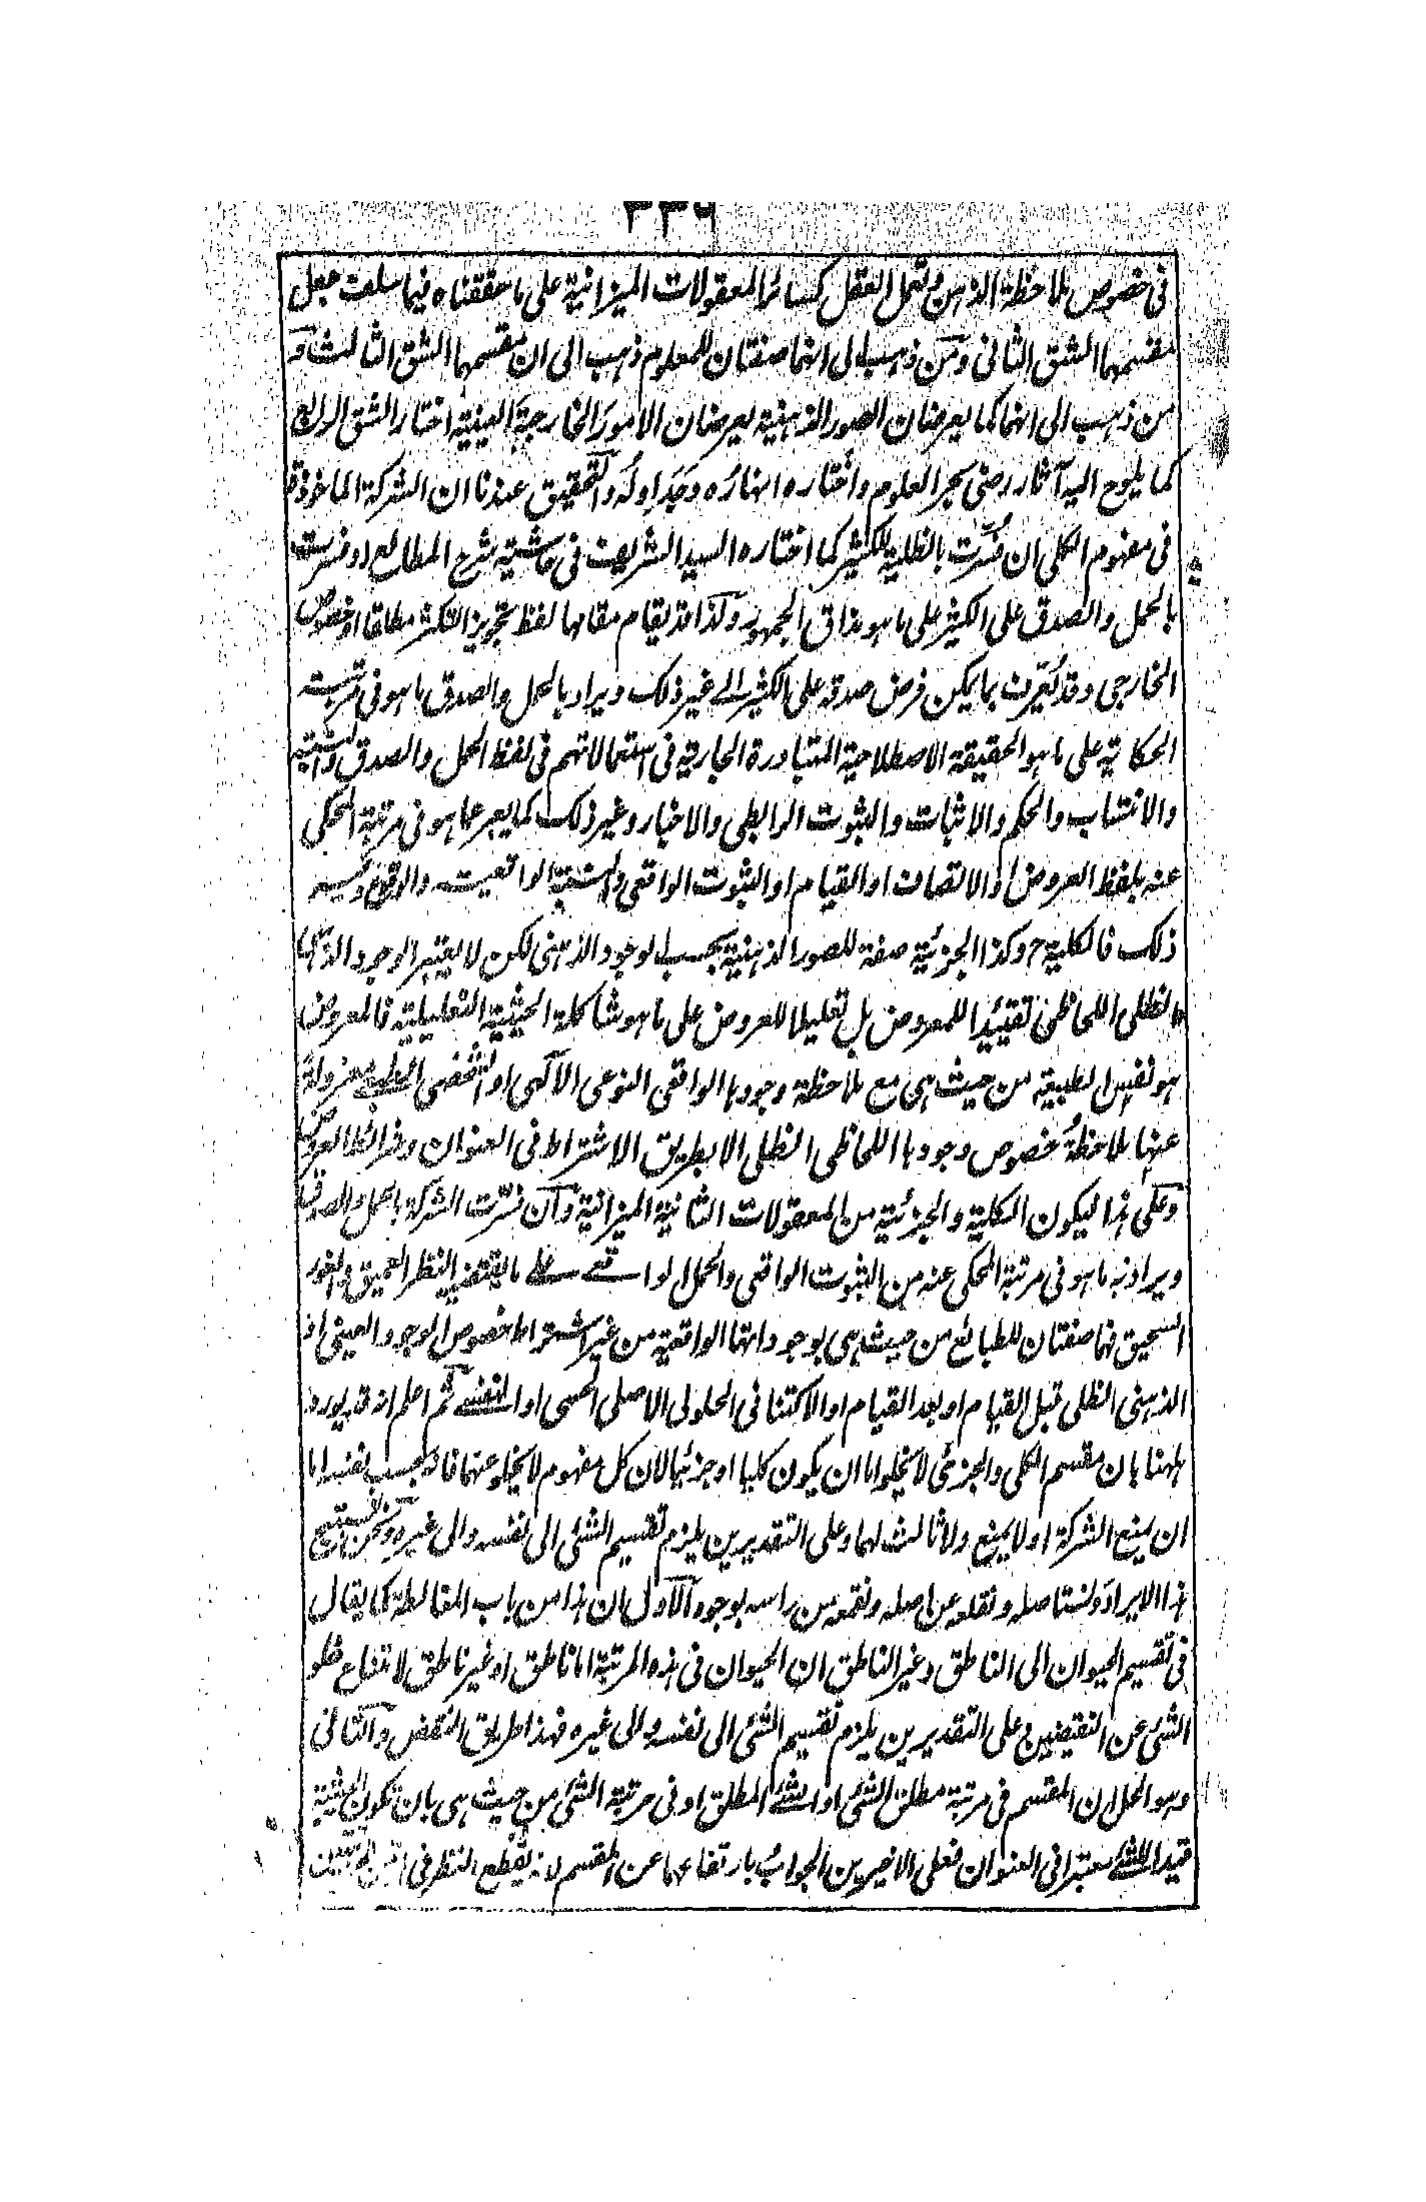 ٣٣٦
في خصوص ملاحظة الذهن وتعمل العقل كسائر المعقولات الميزانية على ما حققناه فيما سلف جعل
مقسمهما الشق الثاني ومن ذهب الى انهما صفتان للمعلوم ذهب الى ان مقسمهما الشق الثالث و
من ذهب الى انهما كما يعرضان الصور الذهنية يعرضان الامور الخارجية العينية اختار الشق الرابع
كما يلوح اليه آثار رضي بحر العلوم واختاره انهاره وجداوله والتحقيق عندنا ان الشركة الماخوذة
في مفهوم الكلي ان فسرت بالظلية للكثير كما اختاره السيد الشريف في حاشية شرح المطالع او فسرت
بالحمل والصدق على الكثير على ما هو مذاق الجمهور وكذا قد يقام مقامها لفظ تجويز التكثر مطلقا او خصوص
الخارجي وقد يعرف بما يمكن فرض صدقه على الكثير الى غير ذلك ويراد بالحمل والصدق ما هو في مرتبة
الحكاية على ما هو الحقيقة الاصطلاحية المتبادرة الجارية في استعمالاتهم في لفظ الحمل والصدق والنسبة
والانتساب والحكم والاثبات والثبوت الرابطي والاخبار وغير ذلك كما يعبر عما هو في مرتبة المحكي
عنه بلفظ العروض او الاتصاف او القيام او الثبوت الواقعي والنسبة الواقعية والوقوع وغير
ذلك فالكلية ح وكذا الجزئية صفة للصور الذهنية بحسب الوجود الذهني لكن لا يعتبر الوجود الذهني
الظلي اللحاظي تقييدا للمعروض بل تعليلا للعروض على ما هو شاكلة الحيثية التعليلية فالمعروض
هو نفس الطبيعة من حيث هي مع ملاحظة وجودها الواقعي النوعي الالهي او الشخصي الطبعي معزولة
عنها ملاحظة خصوص وجودها اللحاظي الظلي الا بطريق الاشتراط في العنوان وفرائط العروض
وعلى هذا ليكون الكلية والجزئية من المعقولات الثانية الميزانية وان فسرت الشركة بالحمل والصدق
ويراد به ما هو في مرتبة المحكي عنه من الثبوت الواقعي والحمل الواقعي على ما يقتضيه النظر العميق والغور
السحيق فهما صفتان للطبائع من حيث هي بوجوداتها الواقعية من غير اشتراط خصوص الوجود العيني او
الذهني الظلي قبل القيام او بعد القيام او الاكتنافي الحلولي الاصلي الحسي او النفسي ثم اعلم انه قد يورد
ههنا بان مقسم الكلي والجزئي لا يخلو اما ان يكون كليا او جزئيا لان كل مفهوم لا يخلو عنهما فانه بحسب نفسه اما
ان يمنع الشركة او لا يمنع ولا ثالث لهما وعلى التقديرين يلزم تقسيم الشئ الى نفسه والى غيره ونحن نستقبح
هذا الايراد ونستاصله ونقلعه عن اصله ونقمعه من راسه بوجوه الاول ان هذا من باب المغالطة كما يقال
في تقسيم الحيوان الى الناطق وغير الناطق ان الحيوان في هذه المرتبة اما ناطق او غير ناطق لامتناع خلو
الشئ عن النقيضين وعلى التقديرين يلزم تقسيم الشئ الى نفسه والى غيره فهذا طريق النقض والثاني
وهو الحل ان المقسم في مرتبة مطلق الشئ او الشئ المطلق او في مرتبة الشئ من حيث هي بان تكون الحيثية
قيدا للشئ معتبرا في العنوان فعلى الاخيرين الجواب بارتفاعهما عن المقسم لانه يقطع النظر في